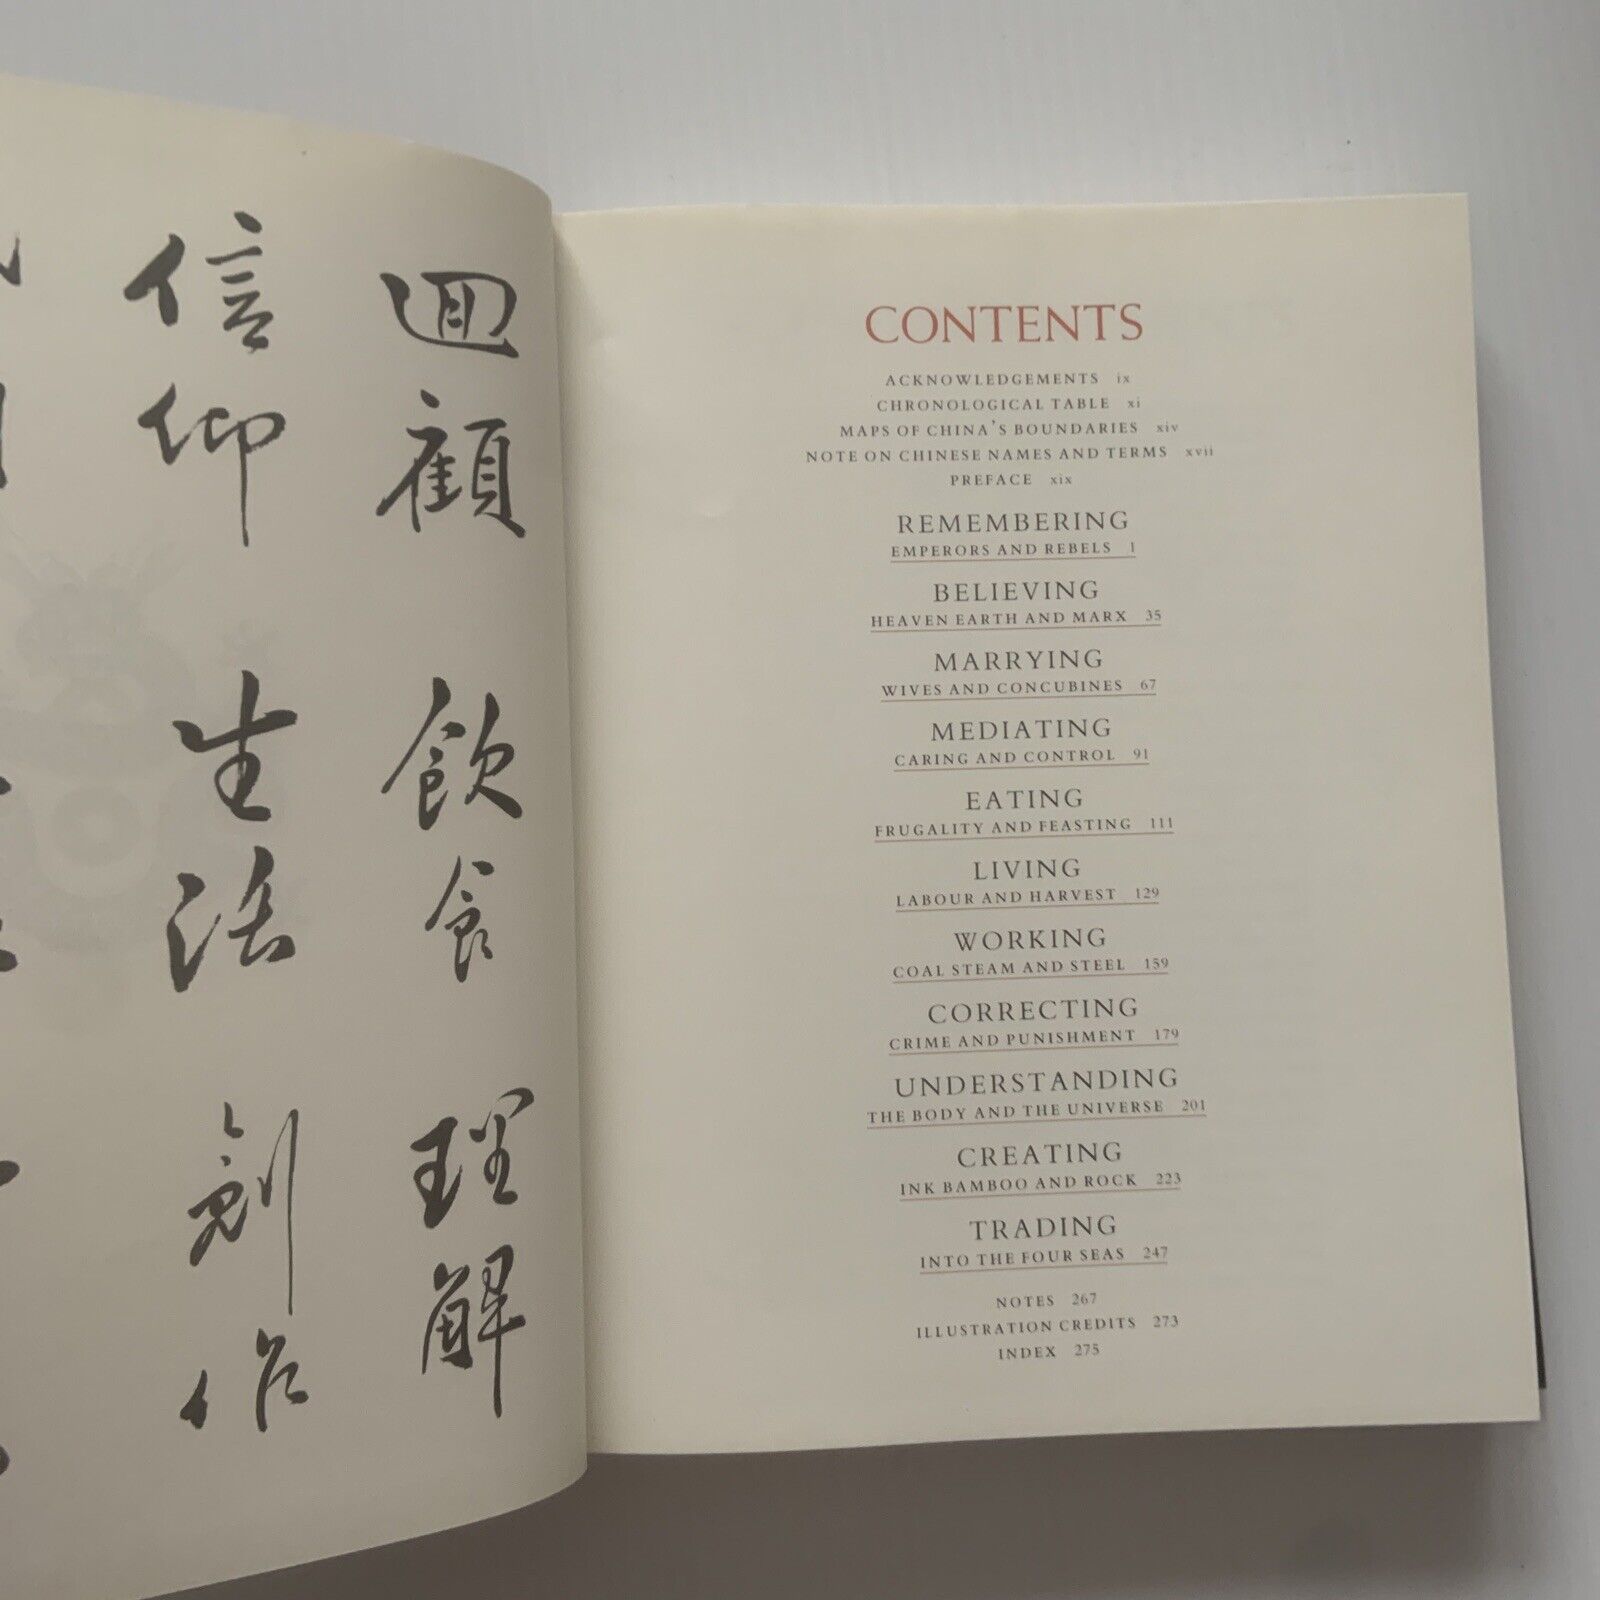 回顧 飲食 理解
信仰 生活 創作
CONTENTS
ACKNOWLEDGEMENTS ix
CHRONOLOGICAL TABLE xi
MAPS OF CHINA'S BOUNDARIES xiv
NOTE ON CHINESE NAMES AND TERMS xvii
PREFACE xix
REMEMBERING
EMPERORS AND REBELS 1
BELIEVING
HEAVEN EARTH AND MARX 35
MARRYING
WIVES AND CONCUBINES 67
MEDIATING
CARING AND CONTROL 91
EATING
FRUGALITY AND FEASTING 111
LIVING
LABOUR AND HARVEST 129
WORKING
COAL STEAM AND STEEL 159
CORRECTING
CRIME AND PUNISHMENT 179
UNDERSTANDING
THE BODY AND THE UNIVERSE 201
CREATING
INK BAMBOO AND ROCK 223
TRADING
INTO THE FOUR SEAS 247
NOTES 267
ILLUSTRATION CREDITS 273
INDEX 275